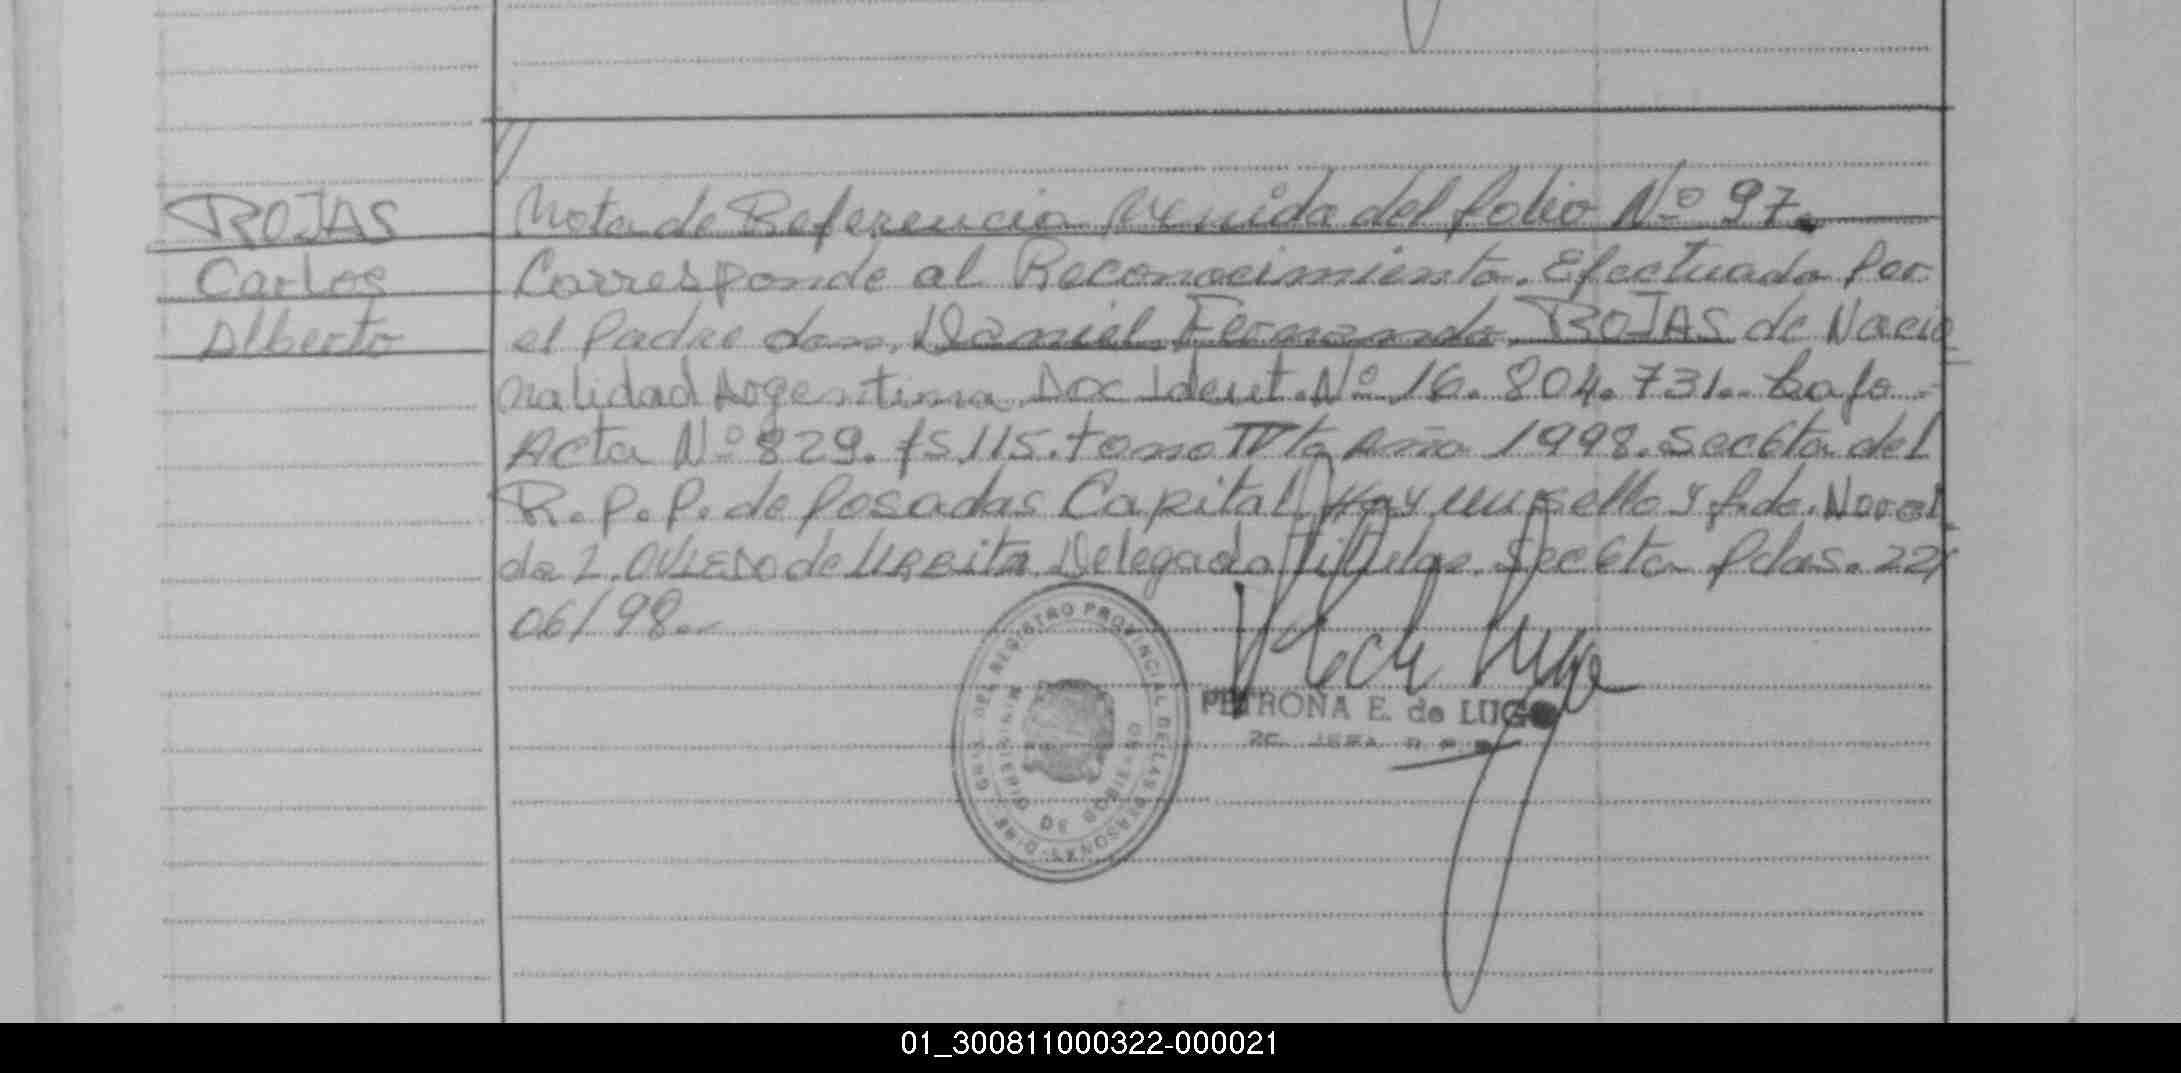 ROJAS
Carlos
Alberto
Nota de Referencia Venida del folio Nº 97.
Corresponde al Reconocimiento. Efectuado Por
el Padre don. Daniel Fernando ROJAS de Nacio
nalidad Argentina Doc Ident. Nº 16.804.731.. bajo.-
Acta Nº 829. fs 115. tomo IV to Año 1998. Secc 6ta del
R.P.P. de Posadas Capital. Hay un sello y fdo.
da I. OVIEDO de URBITA Delegada Secc 6ta Pdas. 22/
06/98.-
DEL REGISTRO PROVINCIAL DE LAS PERSONAS
MINISTERIO DE GOBIERNO
PETRONA E. de LUGO